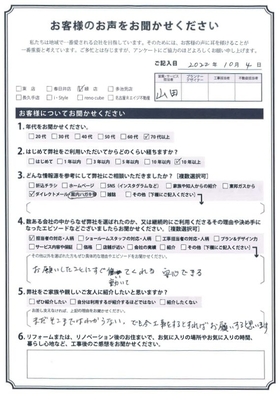 お客様のお声をお聞かせください
私たちは地域で一番愛される会社を目指しています。そのためには、お客様の声に耳を傾けることが
一番重要と考えています。ご多忙とはなじますが、アンケートにご協力のほどよろしくお願い申し上げます。
ご記入日 2022年10月4日
山田
東店 春日井店 緑店 多治見店
長久手店 i-Style reno cube 名古屋エイジ不動産
お客様についてお聞かせください
1.年代をお聞かせください。
20代 30代 40代 50代 60代 70代以上
2.はじめて弊社をご利用いただいてからどのくらい経ちますか?
はじめて 1年以内 3年以内 5年以内 10年以内 10年以上
3.どんな情報源を参考にして弊社にご相談いただきましたか?【複数選択可】
折込チラシ ホームページ SNS(インスタグラムなど) ご家族や知人からの紹介 東邦ガスから
ダイレクトメール 室内ハガキ 看板 雑誌 その他(下欄にご記入ください)
4.数ある会社の中からなぜ弊社を選ばれたのか、又は継続的にご利用くださるその理由か決め手に
なったエピソードなどございましたらお聞かせください。【複数選択可】
担当者の対応・人柄 ショールームスタッフの対応・人柄 工事担当者の対応・人柄 プラン&デザイン力
サービス内容や価格 信頼 店舗が近い 会社の理念やイメージ その他(下欄にご記入ください)
お願いしたことにすぐ動いてくれる 安心できる
5.弊社をご家族や親しいご友人に紹介したいと思いますか?
ぜひ紹介したい 自分は利用するが紹介するほどではない 紹介したくない
6.リフォームまたは、リノベーション後のお住まいで、お気に入りの場所やお気に入りの時間、
暮らし心地など、工事後のご感想をお聞かせください。